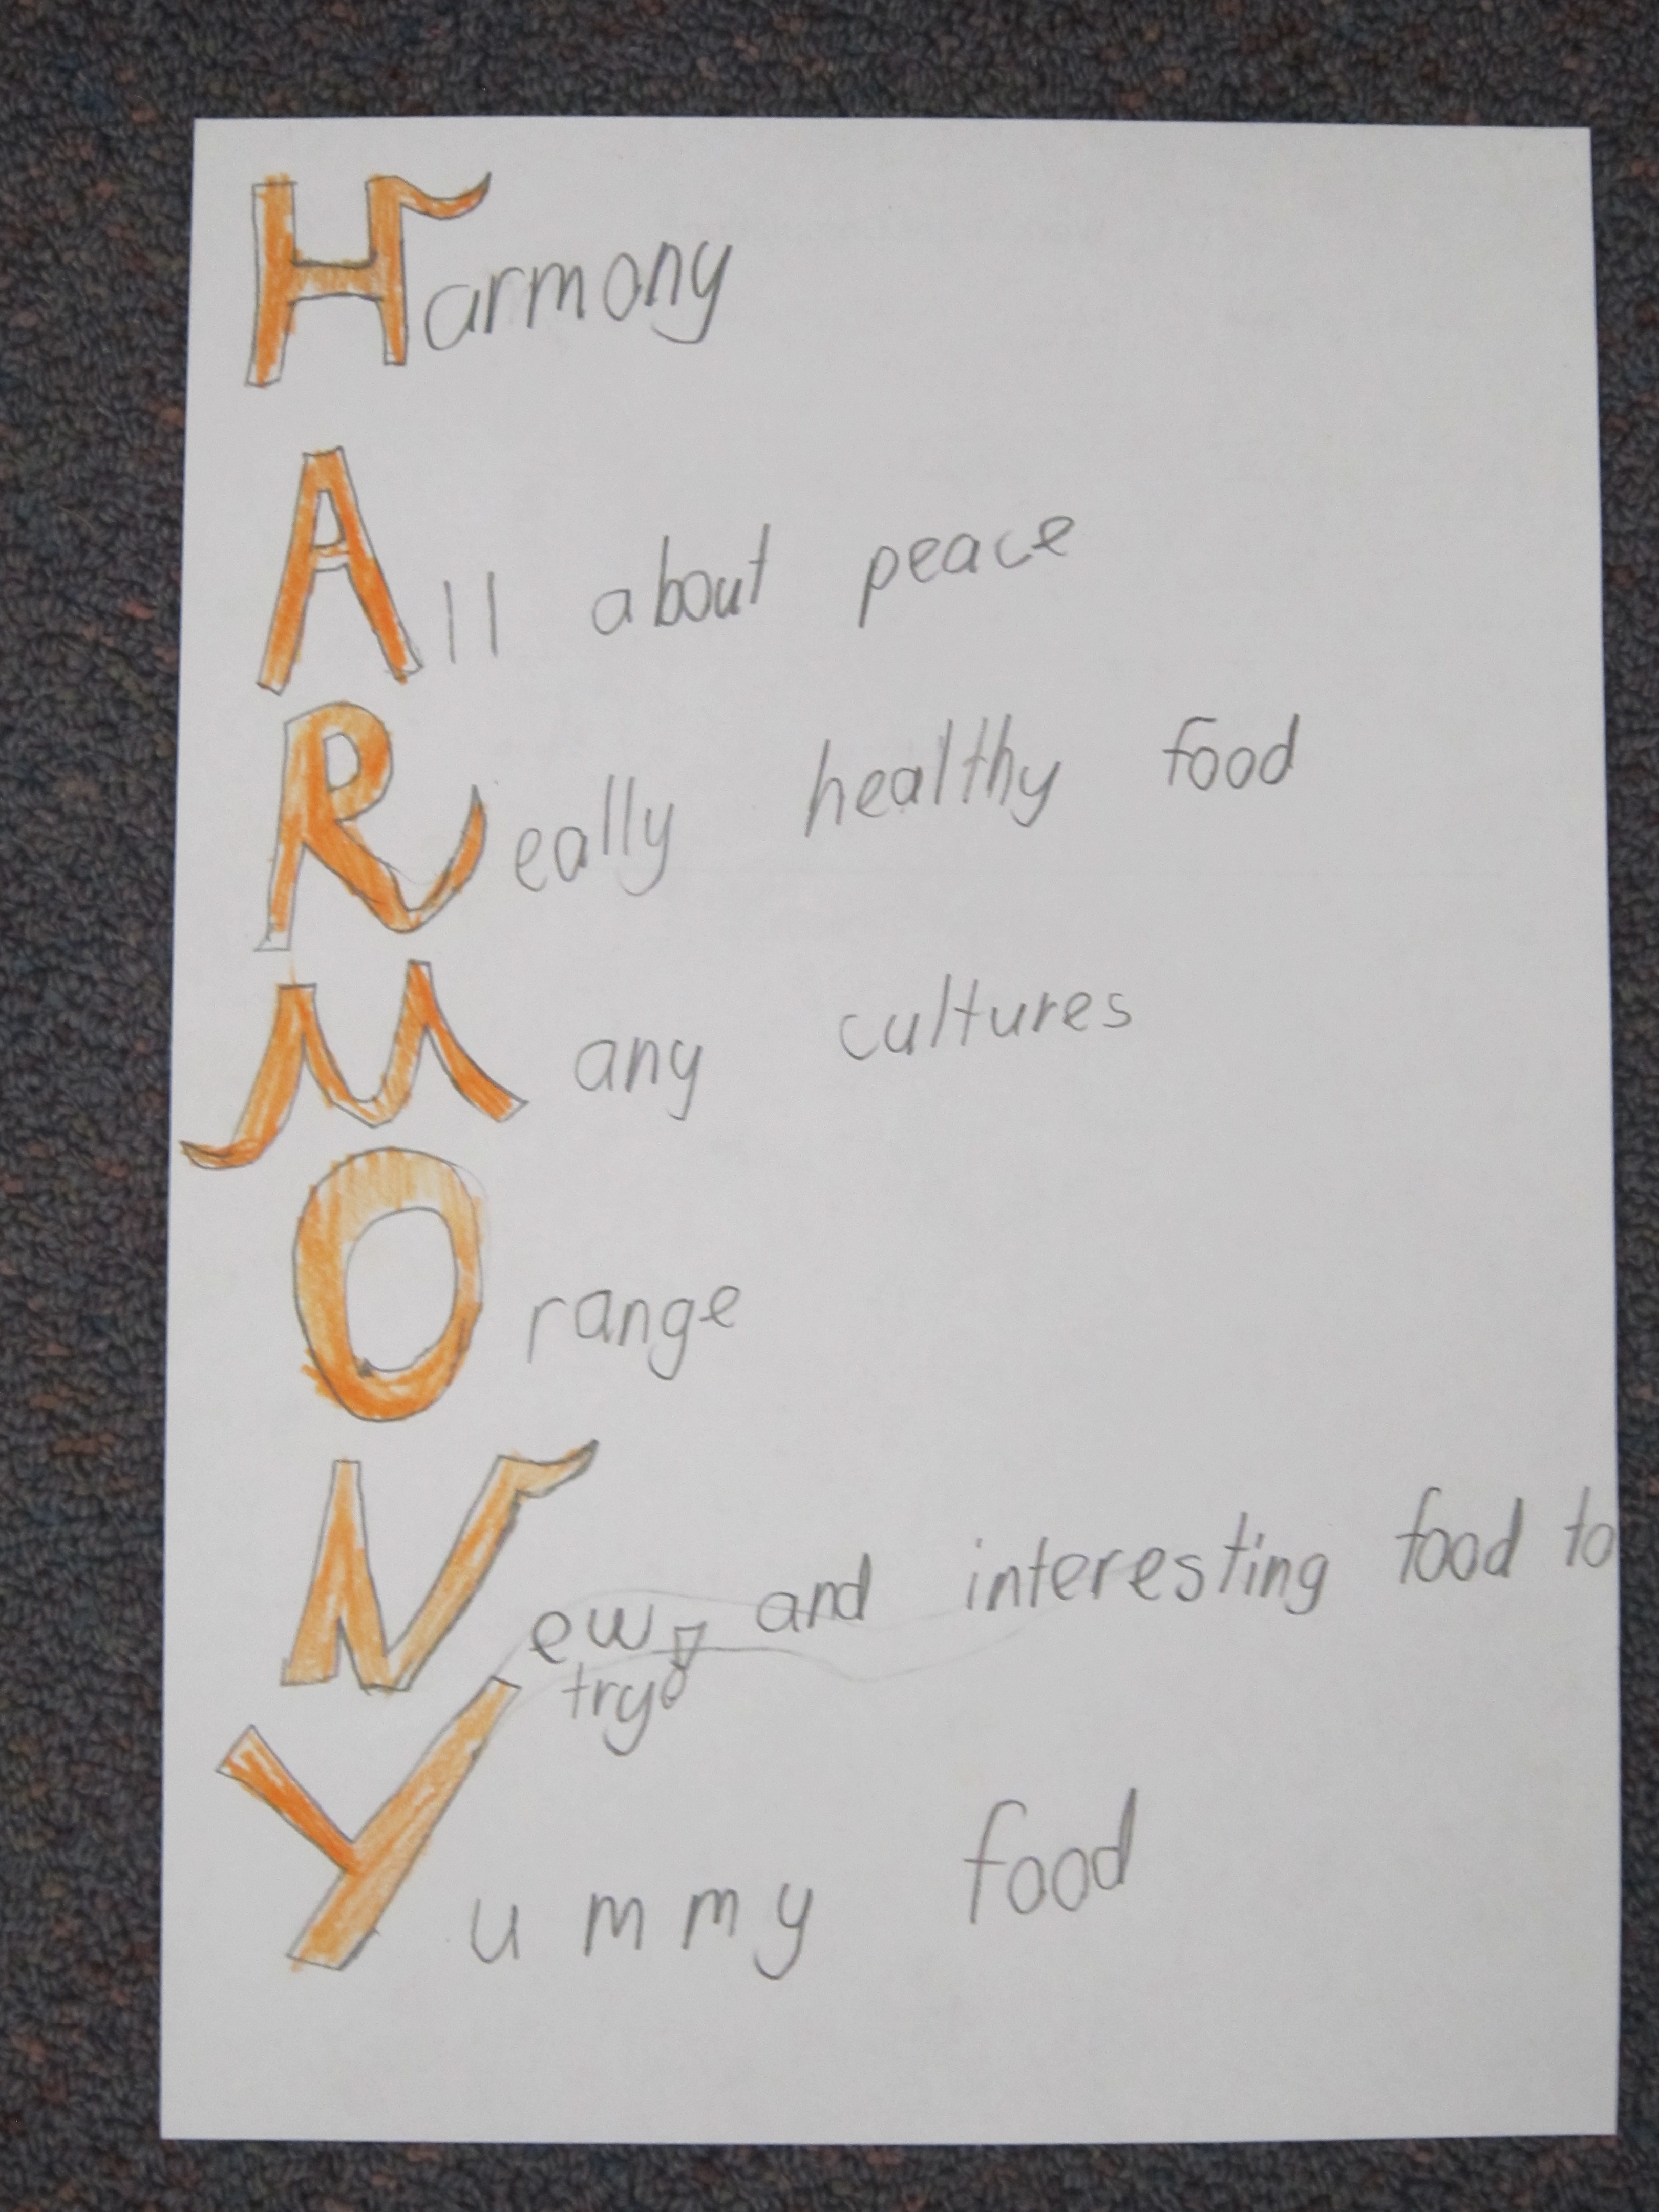 Harmony
All about peace
Really healthy food
Many cultures
Orange
New and interesting food to
try
Yummy food